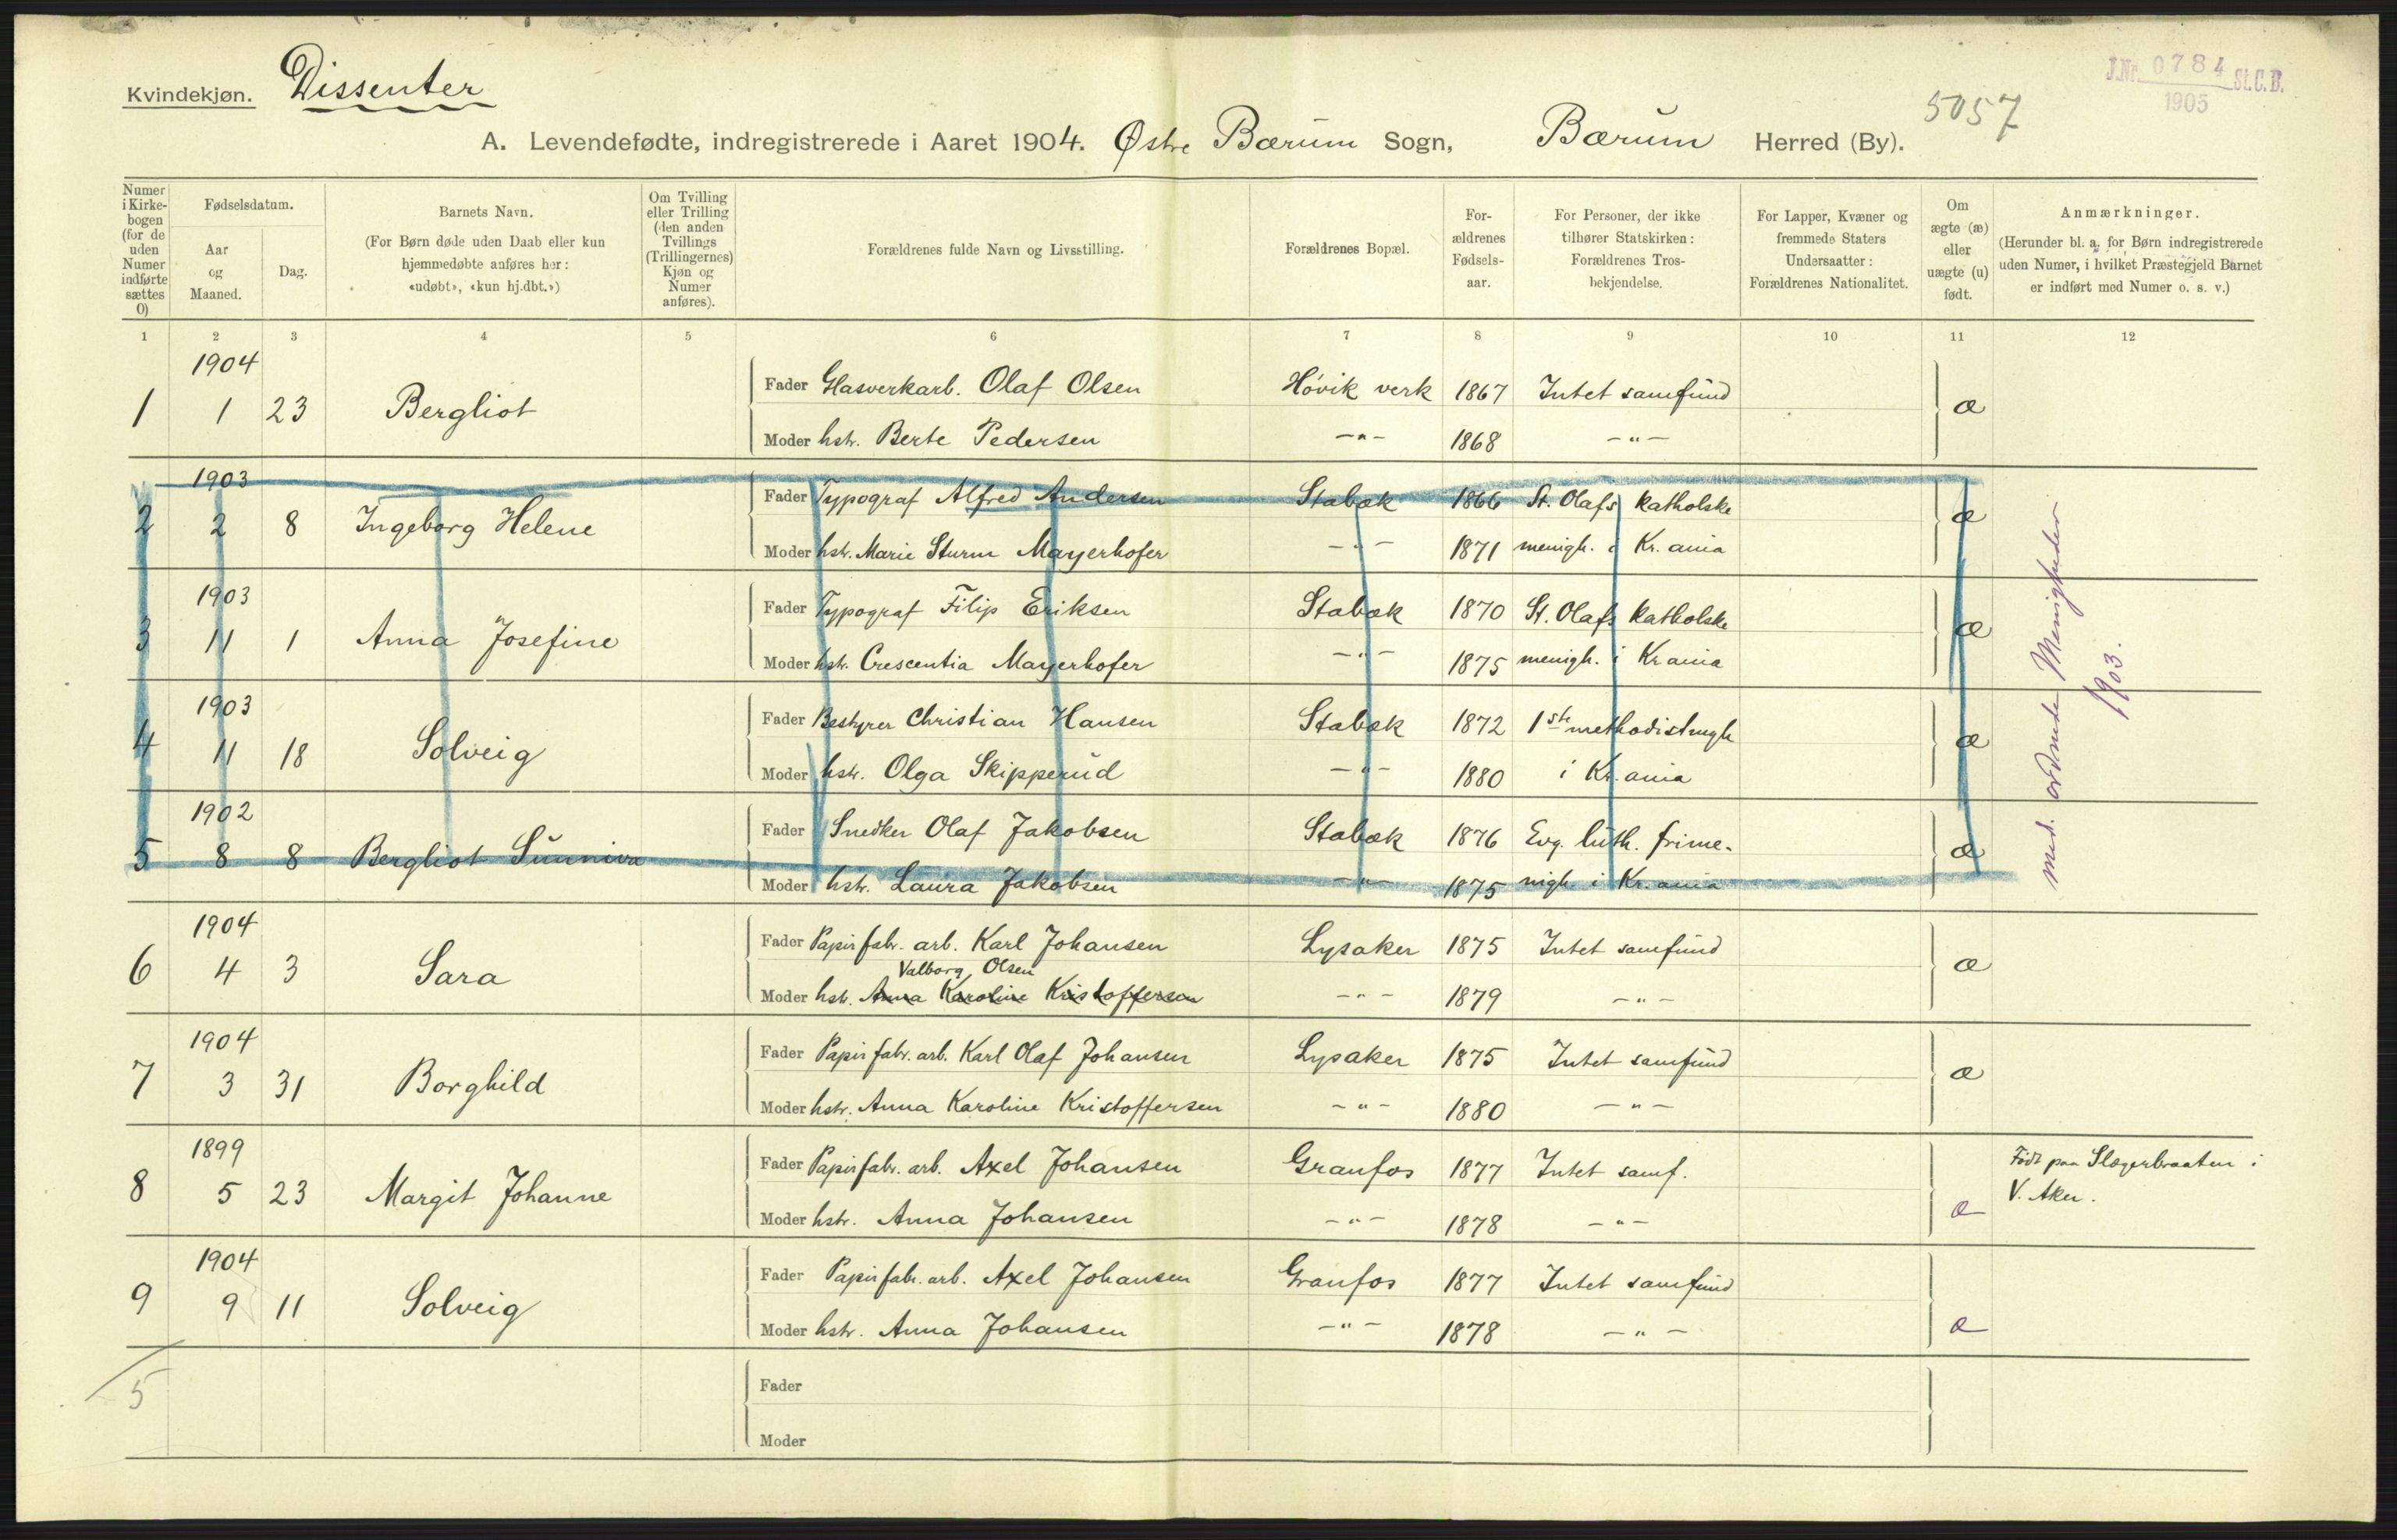 Kvindekjøn. Dissenter
J.Nr. 0784 St.C.B.
1905
5057
A. Levendefødte, indregistrerede i Aaret 1904. Østre Bærum Sogn, Bærum Herred (By).
Numer i Kirkebogen (for de uden Numer indførte sættes 0)
Fødselsdatum.
Aar og Maaned.
Dag.
Barnets Navn.
(For Børn døde uden Daab eller kun hjemmedøbte anføres her: «udøbt», «kun hj.dbt.»)
Om Tvilling eller Trilling (den anden Tvillings (Trillingernes) Kjøn og Numer anføres).
Forældrenes fulde Navn og Livsstilling.
Forældrenes Bopæl.
Forældrenes Fødselsaar.
For Personer, der ikke tilhører Statskirken: Forældrenes Trosbekjendelse.
For Lapper, Kvæner og fremmede Staters Undersaatter: Forældrenes Nationalitet.
Om ægte (æ) eller uægte (u) født.
Anmærkninger.
(Herunder bl. a. for Børn indregistrerede uden Numer, i hvilket Præstegjeld Barnet er indført med Numer o. s. v.)
1 2 3 4 5 6 7 8 9 10 11 12
1904
Fader Glasverkarb. Olaf Olsen Høvik verk 1867 Intet samfund
1 1 23 Bergliot æ
Moder hstr. Berte Pedersen -"- 1868 -"-
1903
Fader Typograf Alfred Andersen Stabæk 1866 St. Olafs katholske
2 2 8 Ingeborg Helene æ
Moder hstr. Marie Sturm Mayerhofer -"- 1871 menigh. i Kr.ania
1903
Fader Typograf Filip Eriksen Stabæk 1870 St. Olafs katholske
3 11 1 Anna Josefine æ
Moder hstr. Crescentia Mayerhofer -"- 1875 menigh. i Krania
1903
Fader Bestyrer Christian Hansen Stabæk 1872 1ste methodistmgh
4 11 18 Solveig æ
Moder hstr. Olga Skipperud -"- 1880 i Kr.ania
1902
Fader Snedker Olaf Jakobsen Stabæk 1876 Evg. luth. frime-
5 8 8 Bergliot Sunniva æ
Moder hstr. Laura Jakobsen -"- 1875 nigh i Kr.ania
med. ordnede Menigheder
1903.
1904
Fader Papirfabr. arb. Karl Johansen Lysaker 1875 Intet samfund
6 4 3 Sara æ
Valborg Olsen
Moder hstr. Anna Karoline Kristoffersen -"- 1879 -"-
1904
Fader Papirfabr. arb. Karl Olaf Johansen Lysaker 1875 Intet samfund
7 3 31 Borghild æ
Moder hstr. Anna Karoline Kristoffersen -"- 1880 -"-
1899
Fader Papirfabr. arb. Axel Johansen Granfos 1877 Intet samf. Født paa Slagerbraaten i
8 5 23 Margit Johanne æ V. Aker.
Moder hstr. Anna Johansen -"- 1878 -"-
1904
Fader Papirfabr. arb. Axel Johansen Granfos 1877 Intet samfund
9 9 11 Solveig æ
Moder hstr. Anna Johansen -"- 1878 -"-
5
Fader
Moder